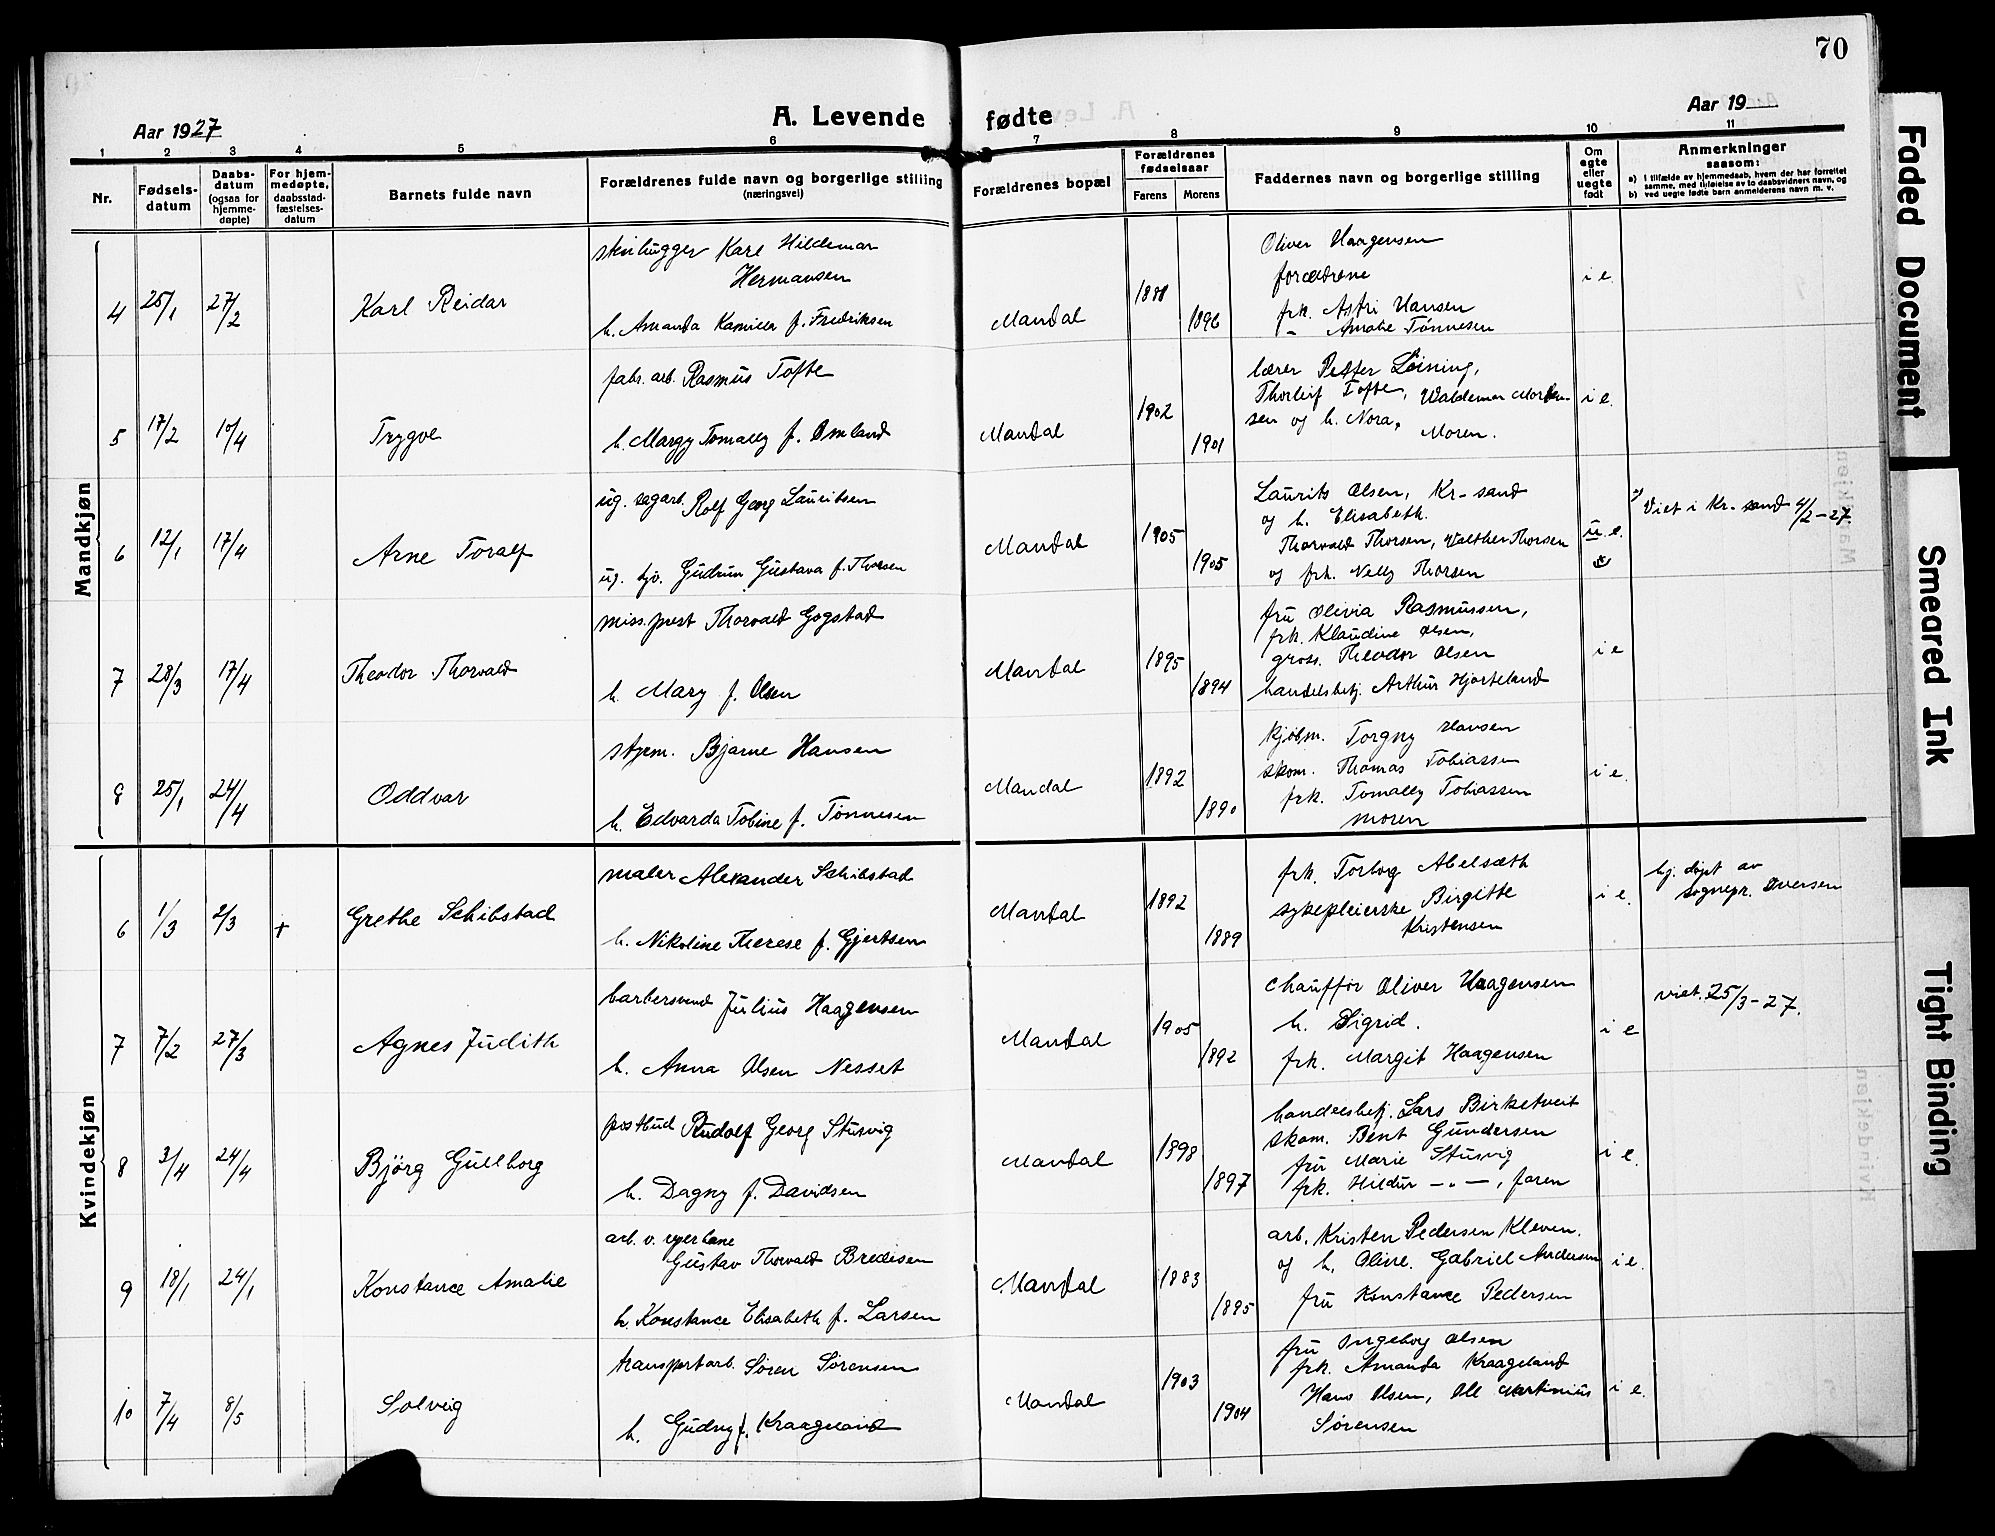 70
Aar 1927
A. Levende fødte
Aar 19
1 2 3 4 5 6 7 8 9 10 11
Nr.
Fødsels-
datum
Daabs-
datum
(ogsaa for
hjemme-
døpte)
For hjem-
medøpte,
daabsstad-
fæstelses-
datum
Barnets fulde navn
Forældrenes fulde navn og borgerlige stilling
(næringsvei)
Forældrenes bopæl
Forældrenes
fødselsaar
Farens Morens
Faddernes navn og borgerlige stilling
Om
egte
eller
uegte
født
Anmerkninger
saasom:
a) I tilfælde av hjemmedaab, hvem der har forrettet
samme, med tilføielse av to daabsvidners navn, og
b) ved uegte fødte barn anmelderens navn m. v.
Mandkjøn
4 25/1 27/2 Karl Reidar
Karl Hildemar
Hermansen
h. Amanda Kamilla f. Fredriksen
Mandal
1896
Oliver Haagensen
forældrene
frk. Astri Hansen
– Amalie Tønnesen
i e.
5 17/2 10/4 Trygve
fabr. arb. Rasmus Tofte
h. Margy Tomally f. Omland
Mandal
1902
1901
lærer Petter Løining,
Thorleif Tofte, Waldemar Morten
sen og h. Nora,
Moren.
i e.
6 12/1 17/4 Arne Toralf
ug. sagarb. Rolf Georg Lauritsen
ug. tjv. Gudrun Gustava f. Thorsen
Mandal
1905
1905
Laurits Olsen, Kr-sand
og h. Elisabeth.
Thorvald Thorsen, Walther Thorsen
og frk. Nelly Thorsen
u. e.
Viet i Kr-sand 4/2-27
7 28/3 17/4 Theodor Thorvald
miss. prest Thorvald Gogstad
h. Mary f. Olsen
Mandal
1895
1894
fru Olivia Rasmussen,
frk. Klaudine Olsen,
gross. Theodor Olsen
handelsbetj. Arthur Hjorteland
i e
8 25/1 24/4 Oddvar
styrm. Bjarne Hansen
h. Edvarda Tobine f. Tønnesen
Mandal
1892
1890
kjøbm. Torgny Hansen
skom. Thomas Tobiassen
frk. Tomally Tobiassen
moren
i e.
Kvindekjøn
6 1/3 2/3 + Grethe Schibstad
maler Alexander Schibstad
h. Nikoline Therese f. Gjertsen
Mandal
1892
1889
frk. Torborg Abelsæth
sykepleierske Birgitte
Kristensen
i e.
hj. døpt av
sognepr. Oversen
7 7/2 27/3 Agnes Judith
barbersvend Julius Haagensen
h. Anna Olsen Nesset
Mandal
1905
1892
chauffør Oliver Haagensen
h. Sigrid.
frk. Margit Haagensen
i e
viet. 25/3-27.
8 3/4 24/4 Bjørg Gullborg
postbud Rudolf Georg Stusvig
h. Dagny f. Davidsen
Mandal
1898
1897
handelsbetj. Lars Birketveit
skom. Bent Gundersen
fru Marie Stusvig
frk. Hildur – „ –, faren
i e.
9 18/1 24/1 Konstance Amalie
arb. v.
Gustav Thorvald Bredesen
h. Konstance Elisabeth f. Larsen
Mandal
1883
1895
arb. Kristen Pedersen Kleven.
og h. Oline. Gabriel Andersen
fru Konstance Pedersen
i e.
10 7/4 8/5 Solveig
transportarb. Søren Sørensen
h. Gudny f. Kraageland
Mandal
1903
1904
fru Ingeborg Olsen
frk. Amanda Kraageland
Hans Olsen, Ole Martinius
Sørensen
i e.
Faded Document
Smeared Ink
Tight Binding